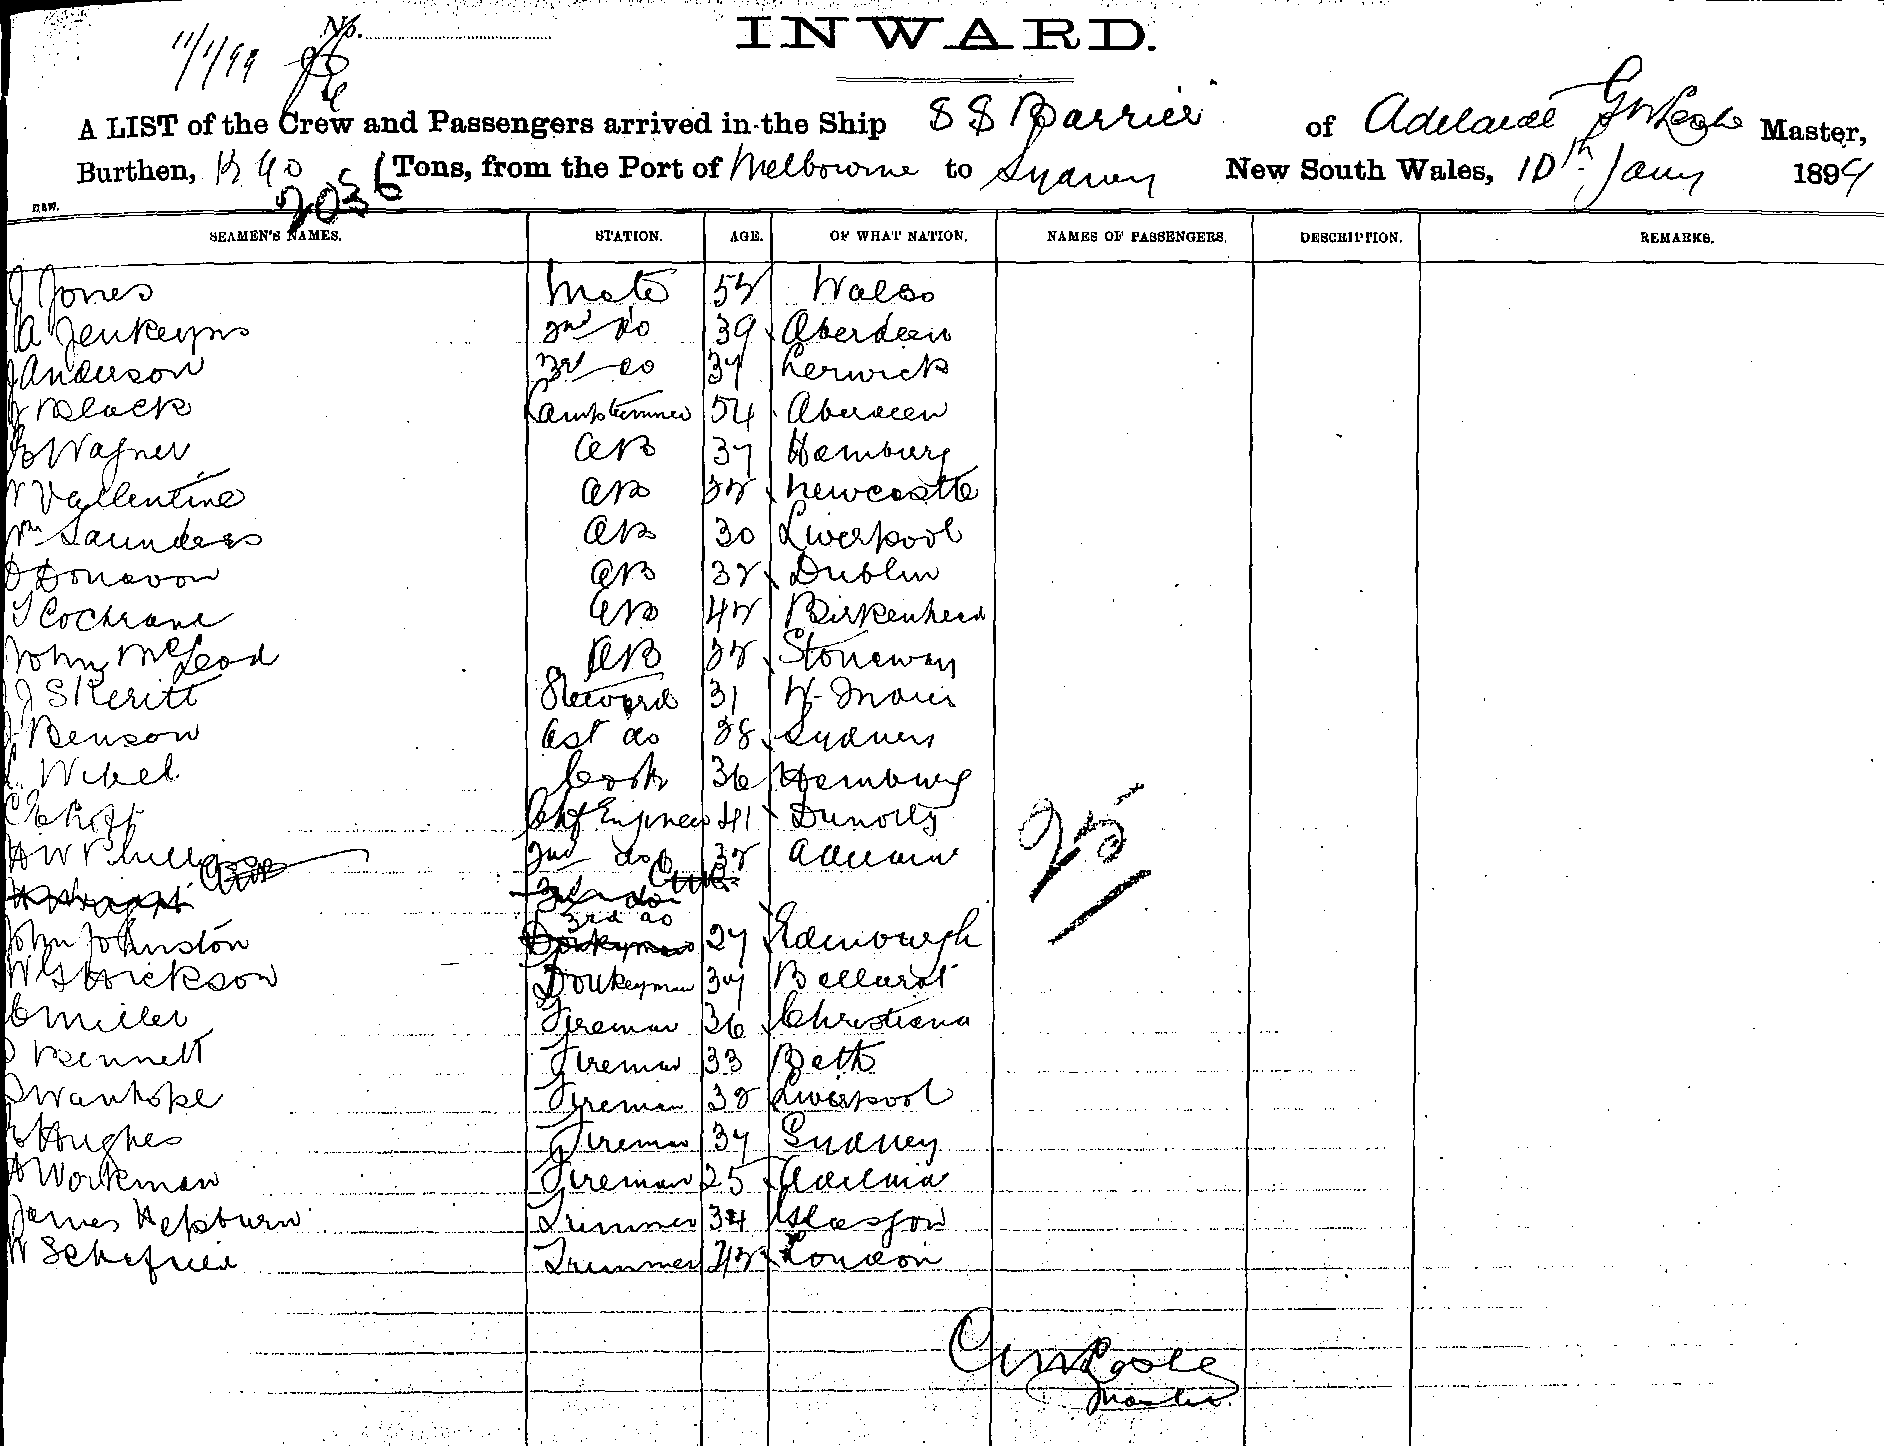 No.
INWARD.
11/1/99
A LIST of the Crew and Passengers arrived in the Ship S S Barrier of Adelaide Master,
Burthen, Tons, from the Port of Melbourne to Sydney New South Wales, 10th Jany 1899
2036
SEAMEN'S NAMES. STATION. AGE. OF WHAT NATION. NAMES OF PASSENGERS. DESCRIPTION. REMARKS.
J Jones Mate 52 Wales
A Jenkeyns 2nd do 39 Aberdeen
J Anderson 3rd do 37 Lerwick
J Black Lamptrimmer 54 Aberdeen
Wagner AB 37 Hamburg
Vallentine AB 32 Newcastle
Wm Saunders AB 30 Liverpool
D Donavon AB 32 Dublin
T Cochrane AB 42 Birkenhead
John McLeod AB Stoneway
J Skeritt Steward 31
J Benson Ast do 28 Sydney
Wibel Cook 36 Hamburg
Chf Engineer 41 Dunolly
H W Phillips 2nd do 32 Adelaide
3rd do
John Johnston Donkeyman 27 Edinburgh
W G Dickson Donkeyman 37 Ballarat
C Miller Fireman 36 Christiana
Bennett Fireman 33 Bath
Wanhope Fireman 32 Liverpool
Hughes Fireman 37 Sydney
A Workman Fireman 25 Adelaide
James Hepburn Trimmer 34 Glasgow
W Trimmer 42 London
25
Master